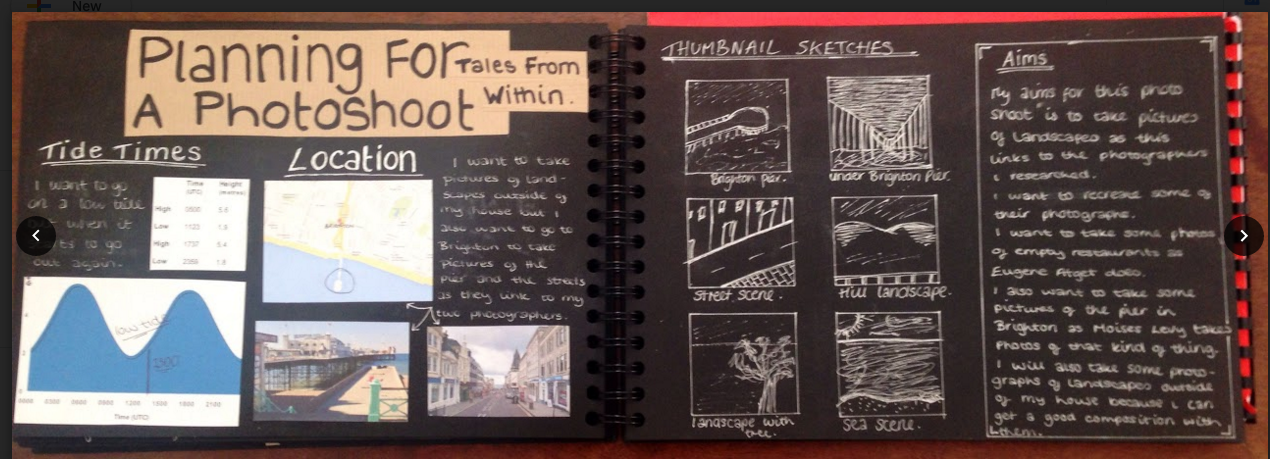 New
Planning For
A Photoshoot
Tales From
Within.
Tide Times
I want to go
on a low tide
when it
to go
out again.
Time Height
(UTC) (metres)
High 0500 5.6
Low 1123 1.8
High 1737 5.4
Low 2355 1.8
low tide
1300
0000 0300 0600 0900 1200 1500 1800 2100
Time (UTC)
Location
I want to take
pictures of land-
scapes outside of
my house but I
also want to go to
Brighton to take
pictures of the
pier and the streets
as they link to my
two photographers.
THUMBNAIL SKETCHES
Brighton pier.
under Brighton Pier.
Street scene.
Hill landscape.
landscape with
tree.
Sea scene.
Aims
My aims for this photo
shoot is to take pictures
of Landscapes as this
links to the photographers
I researched.
I want to recreate some of
their photographs.
I want to take some photos
of empty restaurants as
Eugene Atget does.
I also want to take some
pictures of the pier in
Brighton as Moises Levy takes
Photos of that kind of thing.
I will also take some photo-
graphs of Landscapes outside
of my house because I can
get a good composition with
them.